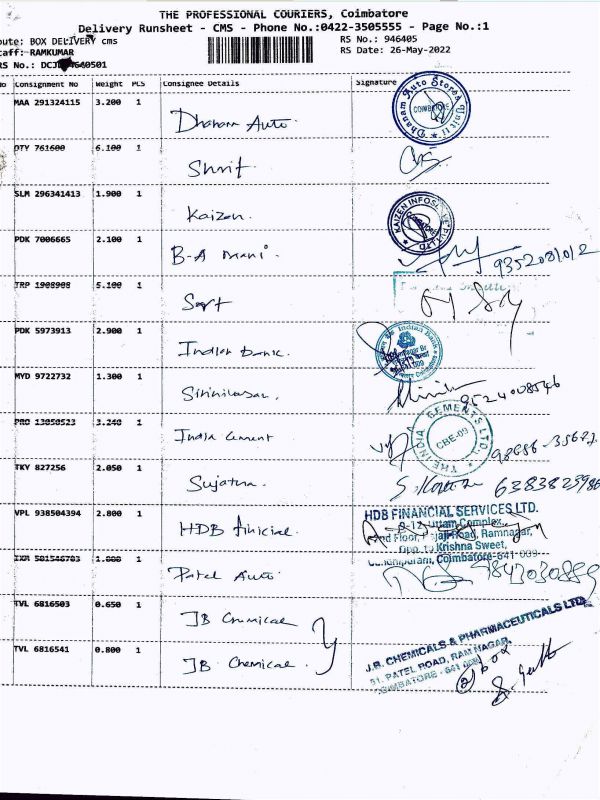 THE PROFESSIONAL COURIERS, Coimbatore
Delivery Runsheet - CMS - Phone No.:0422-3505555 - Page No.:1
oute: BOX DELIVERY cms RS No.: 946405
taff: RAMKUMAR RS Date: 26-May-2022
RS No.: 
No Consignment No Weight PCS Consignee Details Signature
MAA 291324115 3.200 1 Dhanam Auto.
Dhanam Auto Stores Unit II COIMBATORE
DTY 761600 6.100 1
SLM 296341413 1.900 1 Kaizen.
KAIZEN
PDK 7006665 2.100 1 B-A Mani. 9352081012
TRP 1908908 5.100 1
PDK 5973913 2.900 1 Indian bank.
Indian Bank
MYD 9722732 1.300 1 Srinivasan. 9524008546
PRO 13050523 3.240 1 India Cement
THE INDIA CEMENTS LTD. CBE-09
TKY 827256 2.050 1 Sujatha. 6383823986
VPL 938504394 2.800 1 HDB finicial.
HDB FINANCIAL SERVICES LTD.
B-12, Uttam Complex,
Floor, Road, Ramnagar,
Opp. to Krishna Sweet,
Coimbatore-641 009
IXM 501546703 1.000 1 Patel Auto. 9843030889
TVL 6816503 0.650 1 JB Chemical
TVL 6816541 0.800 1 JB Chemical.
J.B. CHEMICALS & PHARMACEUTICALS LTD.
51, PATEL ROAD, RAM NAGAR,
COIMBATORE - 641 009.
② box